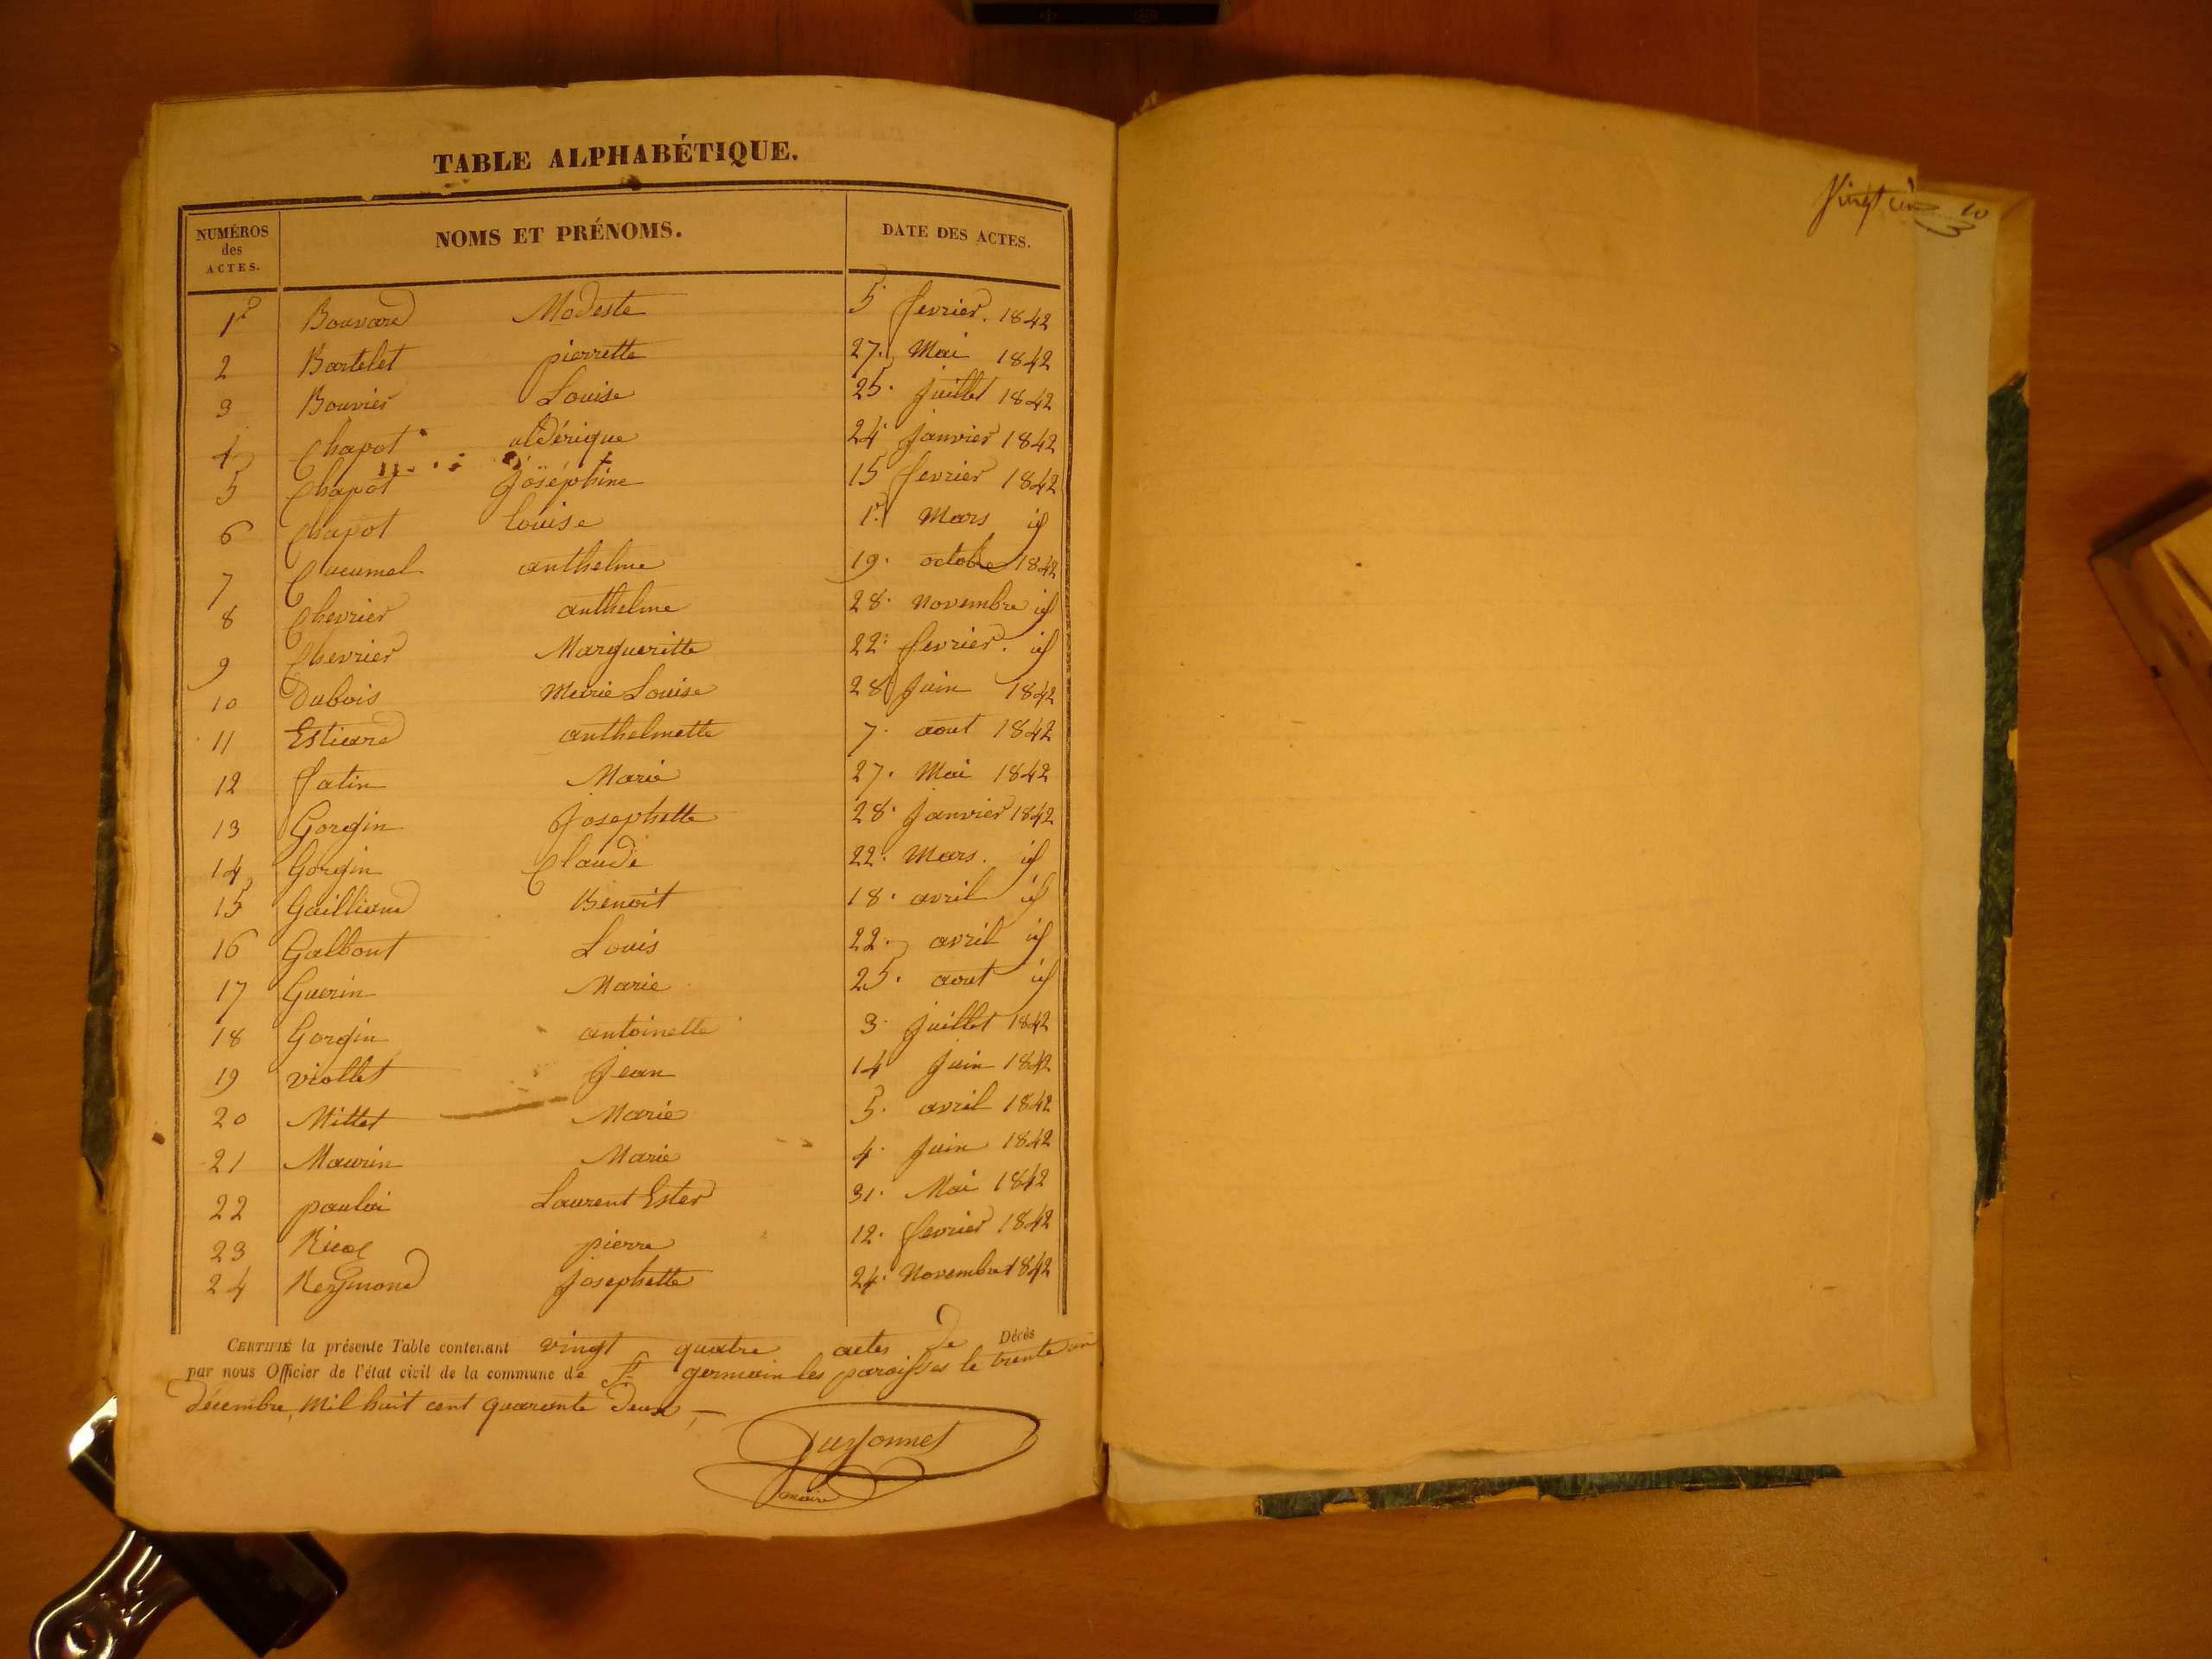 TABLE ALPHABÉTIQUE.
NUMÉROS des ACTES. NOMS ET PRÉNOMS. DATE DES ACTES.
1er Bouvard Modeste 5 fevrier. 1842
2 Bartelet pierrette 27. Mai 1842
3 Bouvier Louise 25. Juillet 1842
4 Chapot aldérique 24 Janvier 1842
5 Chapot Joséphine 15 fevrier 1842
6 Chapot louise 1er Mars id
7 Cucumel anthelme 19. octobre 1842
8 Chevrier anthelme 28. novembre id
9 Chevrier Margueritte 22. fevrier. id
10 Dubois Marie Louise 28 Juin 1842
11 Estiard anthelmette 7. aout 1842
12 fatin Marie 27. Mai 1842
13 Gorgin Josephette 28. Janvier 1842
14 Gorgin Claude 22. Mars. id
15 Gailliard Benoit 18. avril id
16 Galbout Louis 22. avril id
17 Guerin Marie 25. aout id
18 Gorgin antoinette 3. Juillet 1842
19 viollet Jean 14 Juin 1842
20 Millet Marie 5. avril 1842
21 Maurin Marie 4. Juin 1842
22 Laurent Ester 31. Mai 1842
23 pierre 12. fevrier 1842
24 Reymond Josephette 24. Novembre 1842
CERTIFIÉ la présente Table contenant vingt quatre actes de Décès
par nous Officier de l'état civil de la commune de St germain les paroisses le trente un
décembre, mil huit cent quarante deux,
maire
Vingt un